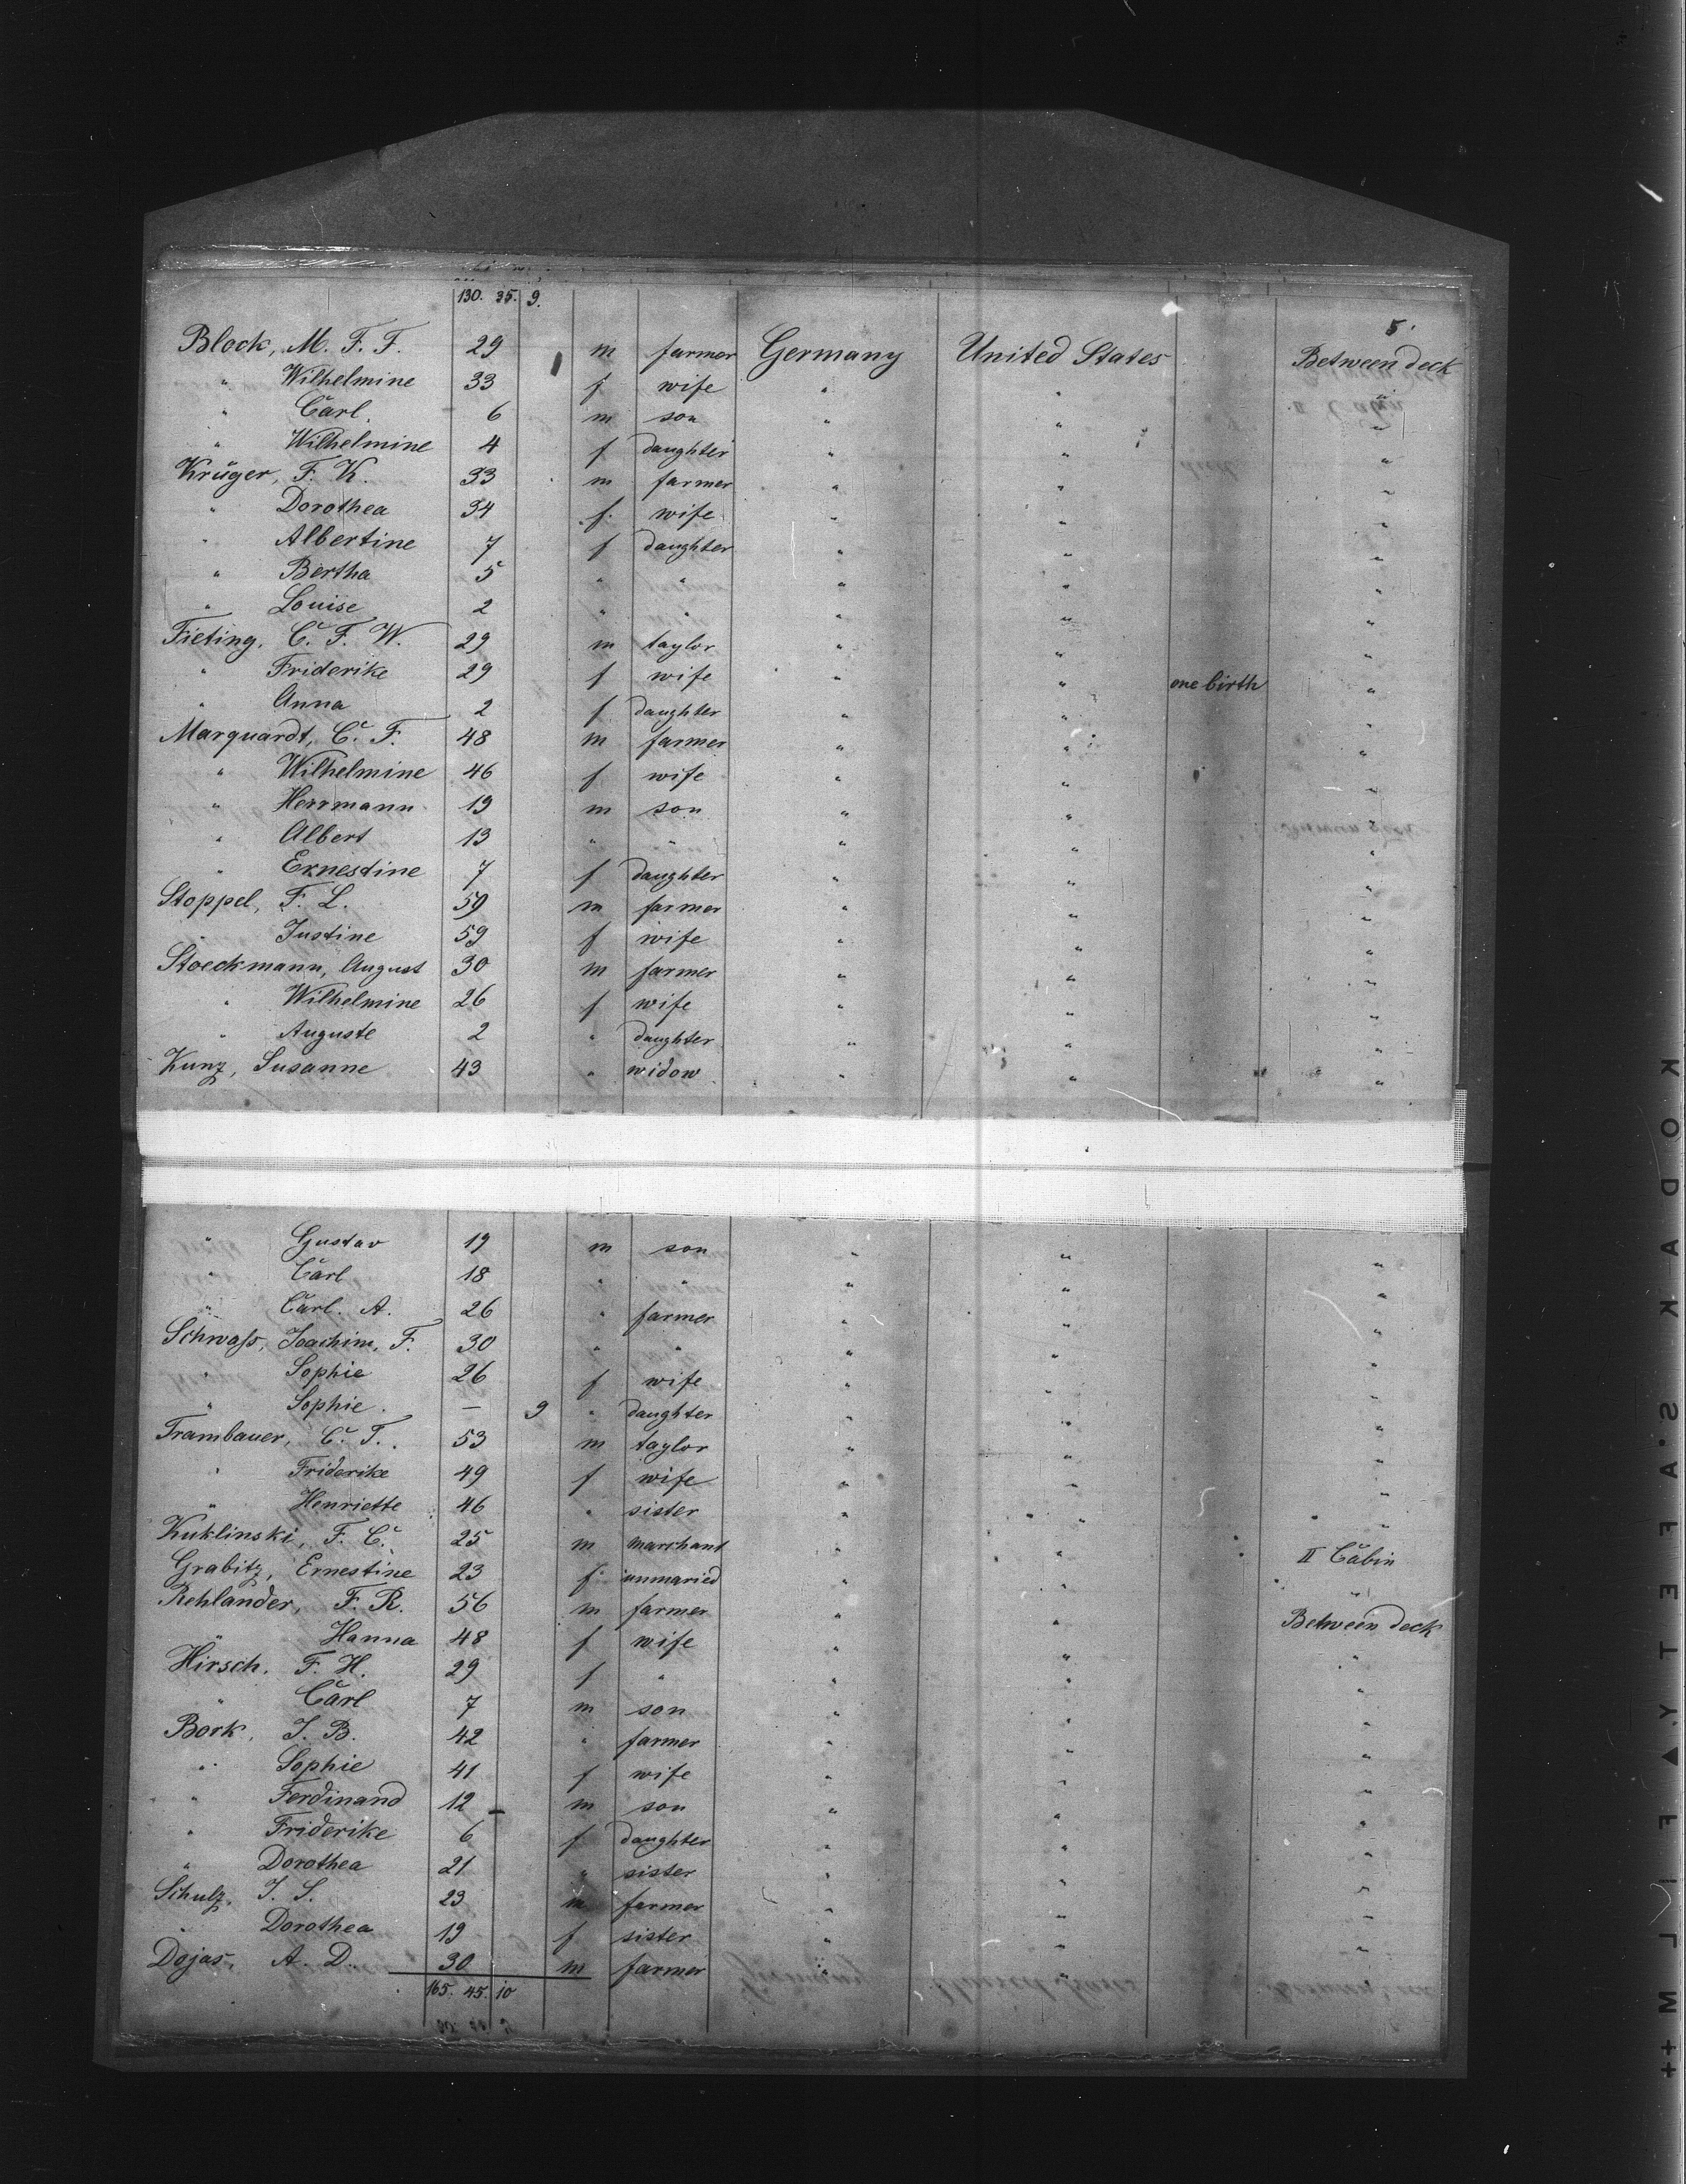 130. 35. 9.
5.
Block, M. F. F. 29 m farmer Germany United States Between deck
" Wilhelmine 33 f wife " " "
" Carl 6 m son " " "
" Wilhelmine 4 f daughter " " "
Krüger, F. K. 33 m farmer " " "
" Dorothea 34 f. wife " " "
" Albertine 7 f daughter " " "
" Bertha 5 " " " " "
" Louise 2 " " " " "
Fieting, C. F. W. 29 m taylor " " "
" Friderike 29 f wife " " one birth "
" Anna 2 f daughter " " "
Marquardt, C. F. 48 m farmer " " "
" Wilhelmine 46 f wife " " "
" Herrmann 19 m son " " "
" Albert 13 " " " " "
" Ernestine 7 f daughter " " "
Stoppel, F. L. 59 m farmer " " "
" Justine 59 f wife " " "
Stoeckmann, August 30 m farmer " " "
" Wilhelmine 26 f wife " " "
" Auguste 2 " daughter " " "
Kunz, Susanne 43 " widow " " "
" Gustav 19 m son " " "
" Carl 18 " " " " "
" Carl. A. 26 " farmer " " "
Schwaß, Joachim, F. 30 " " " " "
" Sophie 26 f wife " " "
" Sophie. — 9 " daughter " " "
Trambauer, C. T. 53 m taylor " " "
" Friderike 49 f wife " " "
" Henriette 46 " sister " " "
Kuklinski, F. C. 25 m marchant " " II Cabin
Grabitz, Ernestine 23 f unmaried " " "
Rehlander, F. R. 56 m farmer " " Between deck
" Hanna 48 f wife " " "
Hirsch. F. H. 29 f " " " "
" Carl 7 m son " " "
Bork, J. B. 42 " farmer " " "
" Sophie 41 f wife " " "
" Ferdinand 12 m son " " "
" Friderike 6 f daughter " " "
" Dorothea 21 " sister " " "
Schulz, J. S. 23 m farmer " " "
" Dorothea 19 f sister " " "
Dojas, A. D. 30 m farmer " "
165. 45. 10
KODAK S.A.FETY ▲ FILM ++